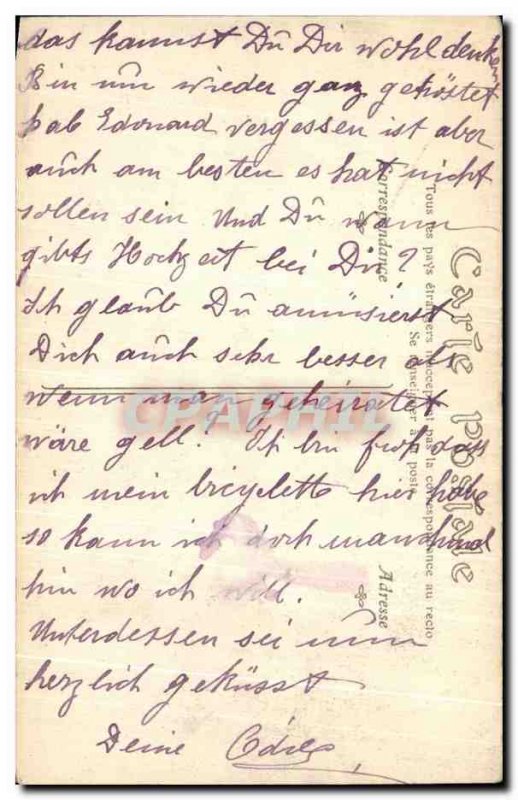 das kannst Dû Dir wohl denken
Bin nûn wieder ganz getröstet
hab Edouard vergessen ist aber
aûch am besten es hat nicht
sollen sein Und Dû wann
gibts Hochzeit bei Dir?
Ich glaûb Dû amüsierst
Dich aûch sehr besser als
wenn man geheiratet
wäre gell? Ich bin froh dass
ich mein bicyclette hier habe
so kann ich doch manchmal
hin wo ich will.
Unterdessen sei nûn
herzlich geküsst
Deine
Carte postale
Tous les pays étrangers n'acceptent pas la correspondance au recto
Se renseigner à la poste
Correspondance
Adresse
CPAPHIL